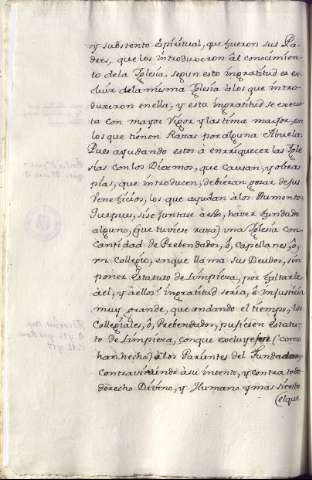 y substento Espiritual, que fueron sus Pa-
dres, que los introduxeron al conocimien-
to de la Iglesia, segun esto ingratitud es ex-
cluir de la misma Iglesia à los que intro-
duxeron en ella, y esta ingratitud se execu-
ta con mayor vigor y lastima maior, en
los que tienen Raras por alguna Abuela
Pues ayudando estos à enriquecer las Igle-
sias con los Diezmos, que causan, y obras
pias, que introducen, debieran gozar de sus
Veneficios, los que ayudan à los Aumentos
Iuepuy, si se juntase à esto, haver fundado
alguno, que tuviese raza) una Iglesia con
Cantidad de Prebendados, ò, Capellanes, ò,
vn Collegio, en que llama sus Deudos, sin
poner Estatuto de Limpieza, por
à el, y à ellos: ingratitud seria, è injusticia
muy grande, que andando el tiempo, los
Collegiales, ò, Prebendados, pusiesen Estatu-
to de Limpieza, con que excluyesen (como
han hecho) à los Parientes del Fundador,
contraviniendo à su intento, y contra todo
derecho Divino, y Humano y mas siendo
(el que